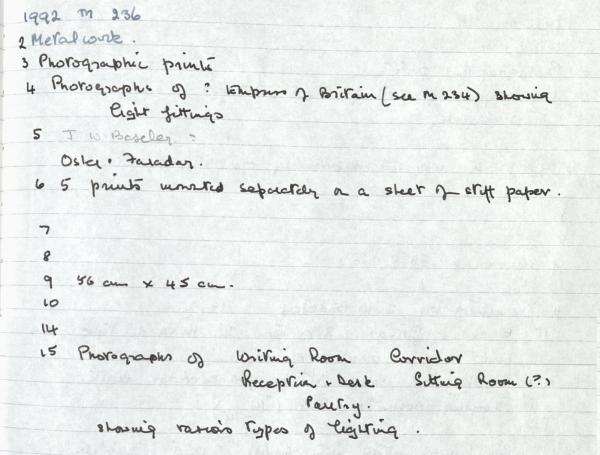 1992 M 236
2 Metalwork.
3 Photographic prints
4 Photographs of ? Empress of Britain (see M 234) showing
light fittings
5 J W Baseley ?
Osler & Faraday.
6 5 prints mounted separately on a sheet of stiff paper.
7
8
9 56 cm x 45 cm.
10
14
15 Photographs of Writing Room Corridor
Reception & Desk Sitting Room (?)
Pantry.
showing various types of lighting.